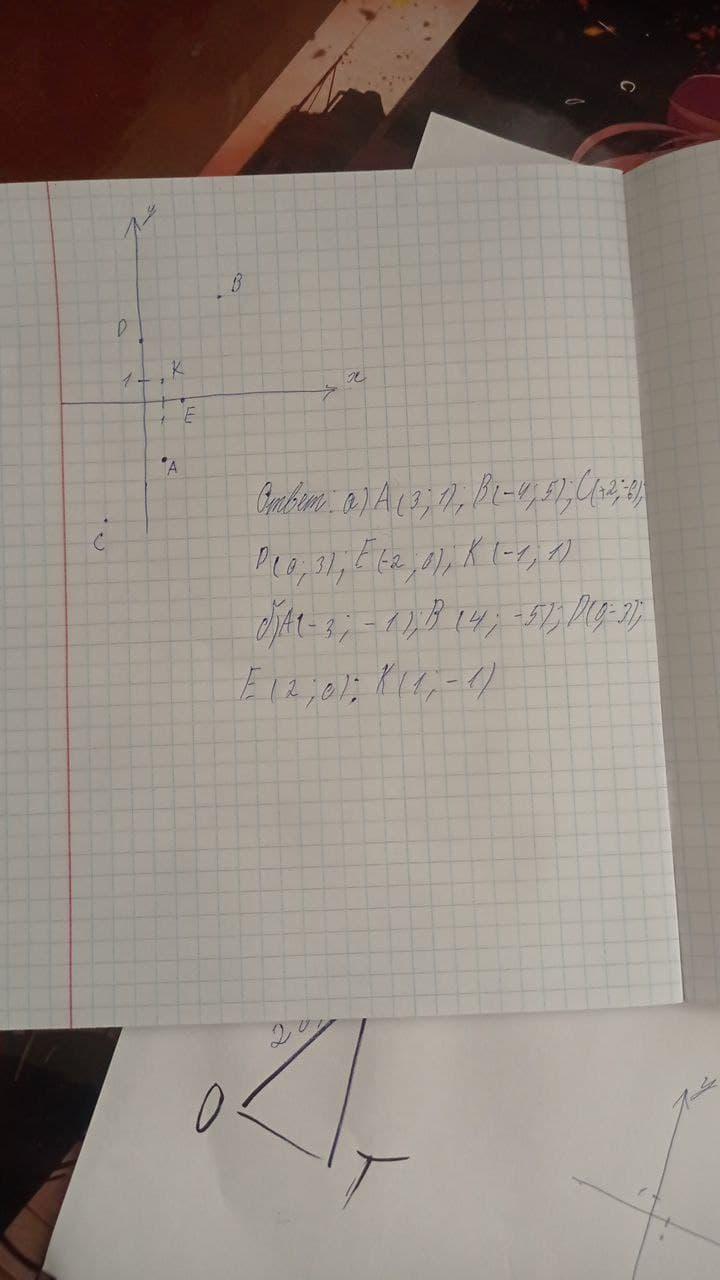 y
B
D
1
K
x
1
E
A
C
Ответ: а) A(3; 1); B(-4; 5); C(+2; -6);
D(0; 3); E(-2; 0); K(-1; 1)
б) A(-3; -1); B(4; -5); D(0; -3);
E(2; 0); K(1; -1)
2
O
T
y